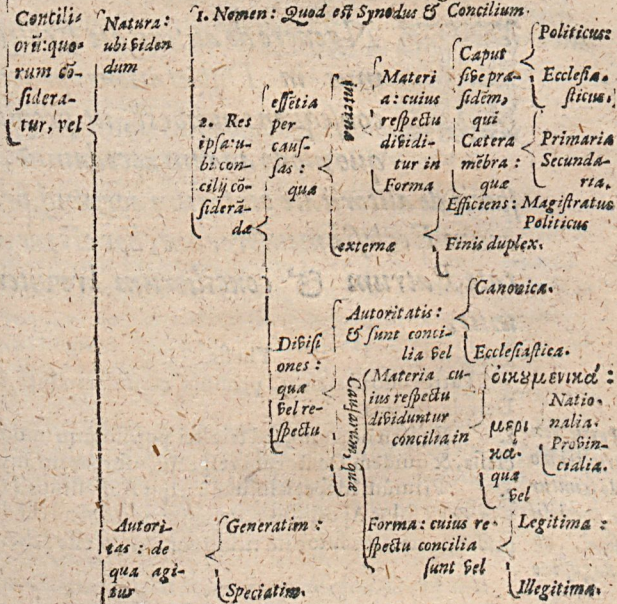 Concili-
orũ: quo-
rum cō-
sidera-
tur, vel
Natura:
ubi viden
dum
1. Nomen: Quod est Synodus & Concilium.
2. Res
ipsa: u-
bi con-
cilij cō-
siderā-
dæ
essētia
per
caus-
sas:
quæ
internæ
Materi
a: cuius
respectu
dividi-
tur in
Forma
Caput
sive præ-
sidem,
qui
Politicus:
Ecclesia-
sticus.
Cætera
mēbra:
quæ
Primaria
Secunda-
ria.
externæ
Efficiens: Magistratus
Politicus
Finis duplex.
Divisi
ones:
quæ
vel re-
spectu
Autoritatis:
& sunt conci-
lia vel
Canonica.
Ecclesiastica.
Causarum, quæ
Materia cu-
ius respectu
dividuntur
concilia in
οἰκυμενικά:
μερι
κα.
quæ
vel
Natio-
nalia.
Provin-
cialia.
Forma: cuius re-
spectu concilia
sunt vel
Legitima:
Illegitima.
Autori-
tas: de
qua agi-
tur
Generatim:
Speciatim.